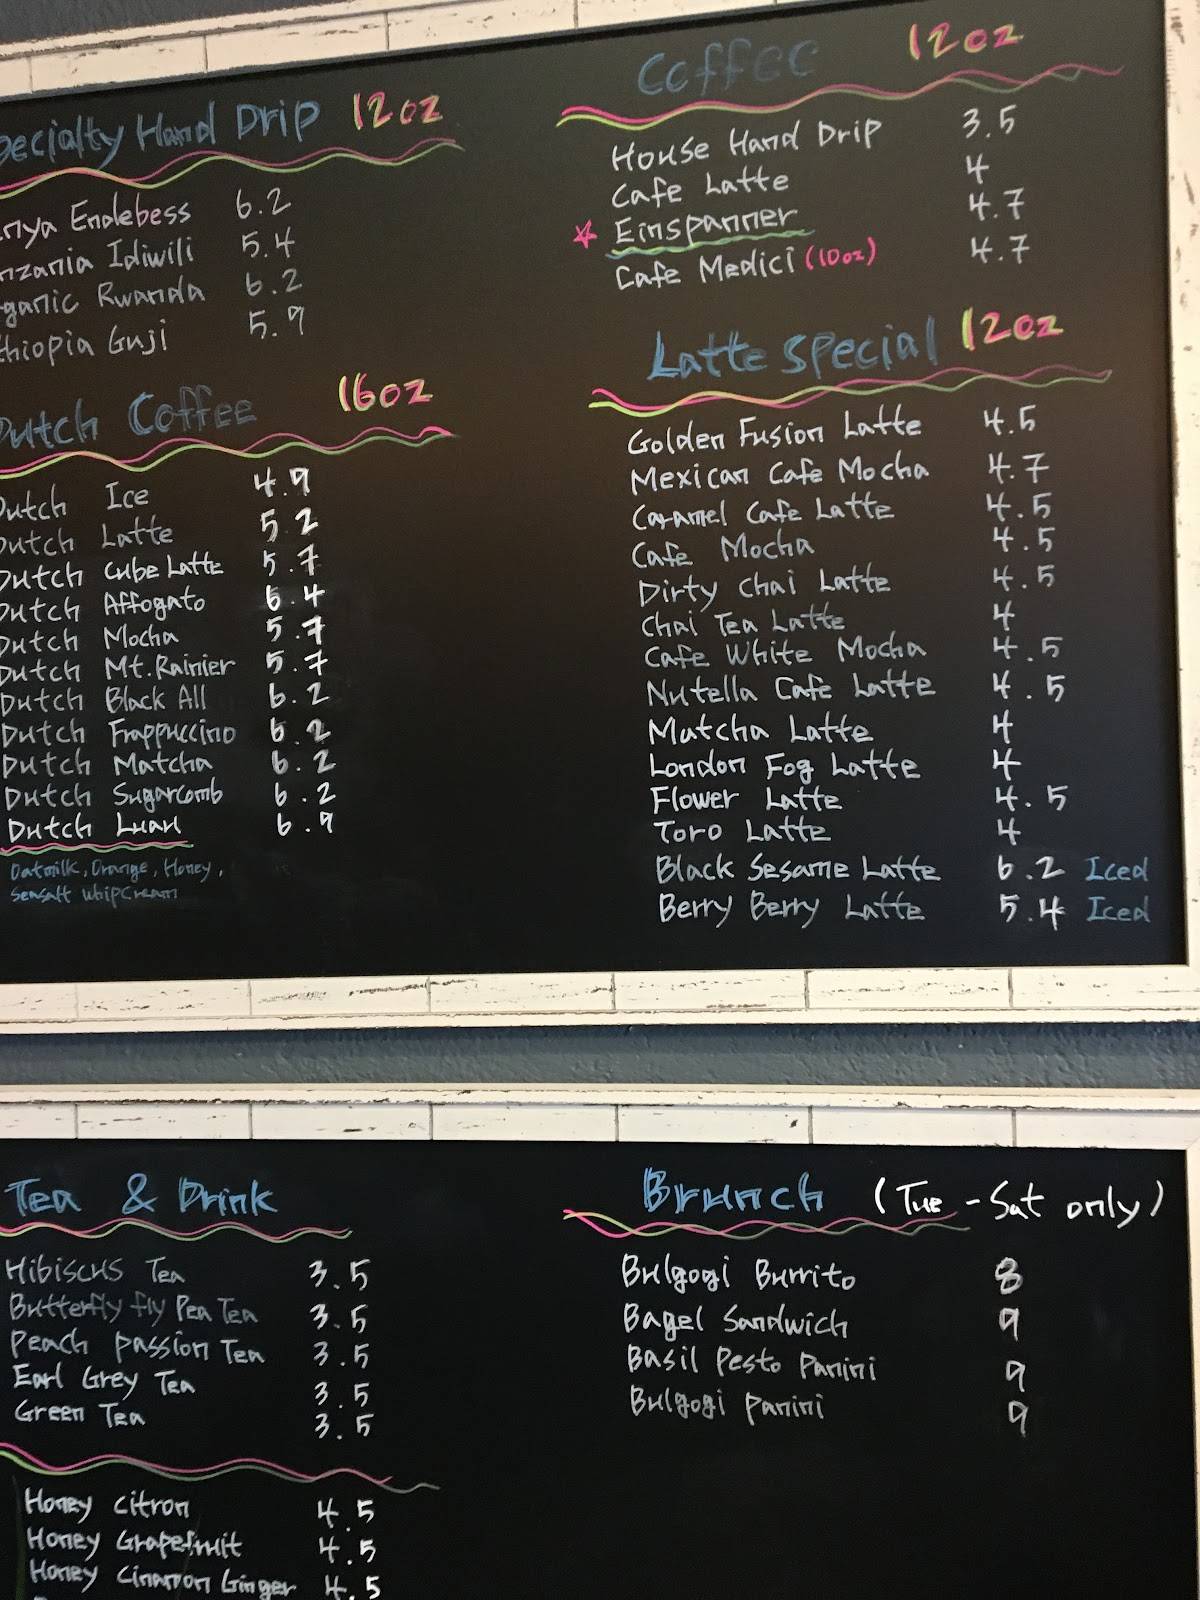 pecialty Hand Drip 12oz
nya Endebess 6.2
nzania Idiwili 5.4
ganic Rwanda 6.2
thiopia Guji 5.9
Dutch Coffee 16oz
Dutch Ice 4.9
Dutch Latte 5.2
Dutch Cube Latte 5.7
Dutch Affogato 6.4
Dutch Mocha 5.7
Dutch Mt.Rainier 5.7
Dutch Black All 6.2
Dutch Frappuccino 6.2
Dutch Matcha 6.2
Dutch Sugarcomb 6.2
Dutch 6.9
Oatmilk, Orange, Honey,
Seasalt Whipcream
Coffee 12oz
House Hand Drip 3.5
Cafe Latte 4
Einspanner 4.7
Cafe Medici (10oz) 4.7
Latte Special 12oz
Golden Fusion Latte 4.5
Mexican Cafe Mocha 4.7
Caramel Cafe Latte 4.5
Cafe Mocha 4.5
Dirty Chai Latte 4.5
Chai Tea Latte 4
Cafe White Mocha 4.5
Nutella Cafe Latte 4.5
Matcha Latte 4
London Fog Latte 4
Flower Latte 4.5
Toro Latte 4
Black Sesame Latte 6.2 Iced
Berry Berry Latte 5.4 Iced
Tea & Drink
Hibiscus Tea 3.5
Butterfly fly Pea Tea 3.5
Peach passion Tea 3.5
Earl Grey Tea 3.5
Green Tea 3.5
Honey Citron 4.5
Honey Grapefruit 4.5
Honey Cinamon Ginger 4.5
Brunch (Tue - Sat only)
Bulgogi Burrito 8
Bagel Sandwich 9
Basil Pesto Panini 9
Bulgogi Panini 9